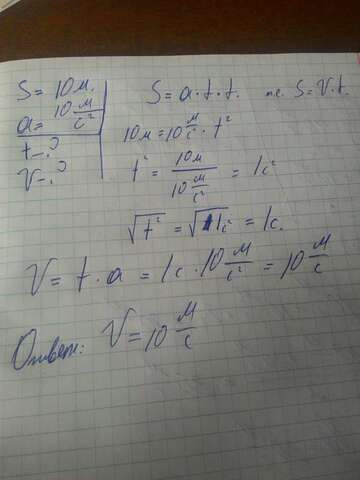 S = 10 м.
a = 10 м/с²
t - ?
V - ?
S = a · t · t. т.е. S = V · t.
10 м = 10 м/с² · t²
t² = 10 м / 10 м/с² = 1 с²
√t² = √1с² = 1с.
V = t · a = 1с · 10 м/с² = 10 м/с
Ответ: V = 10 м/с